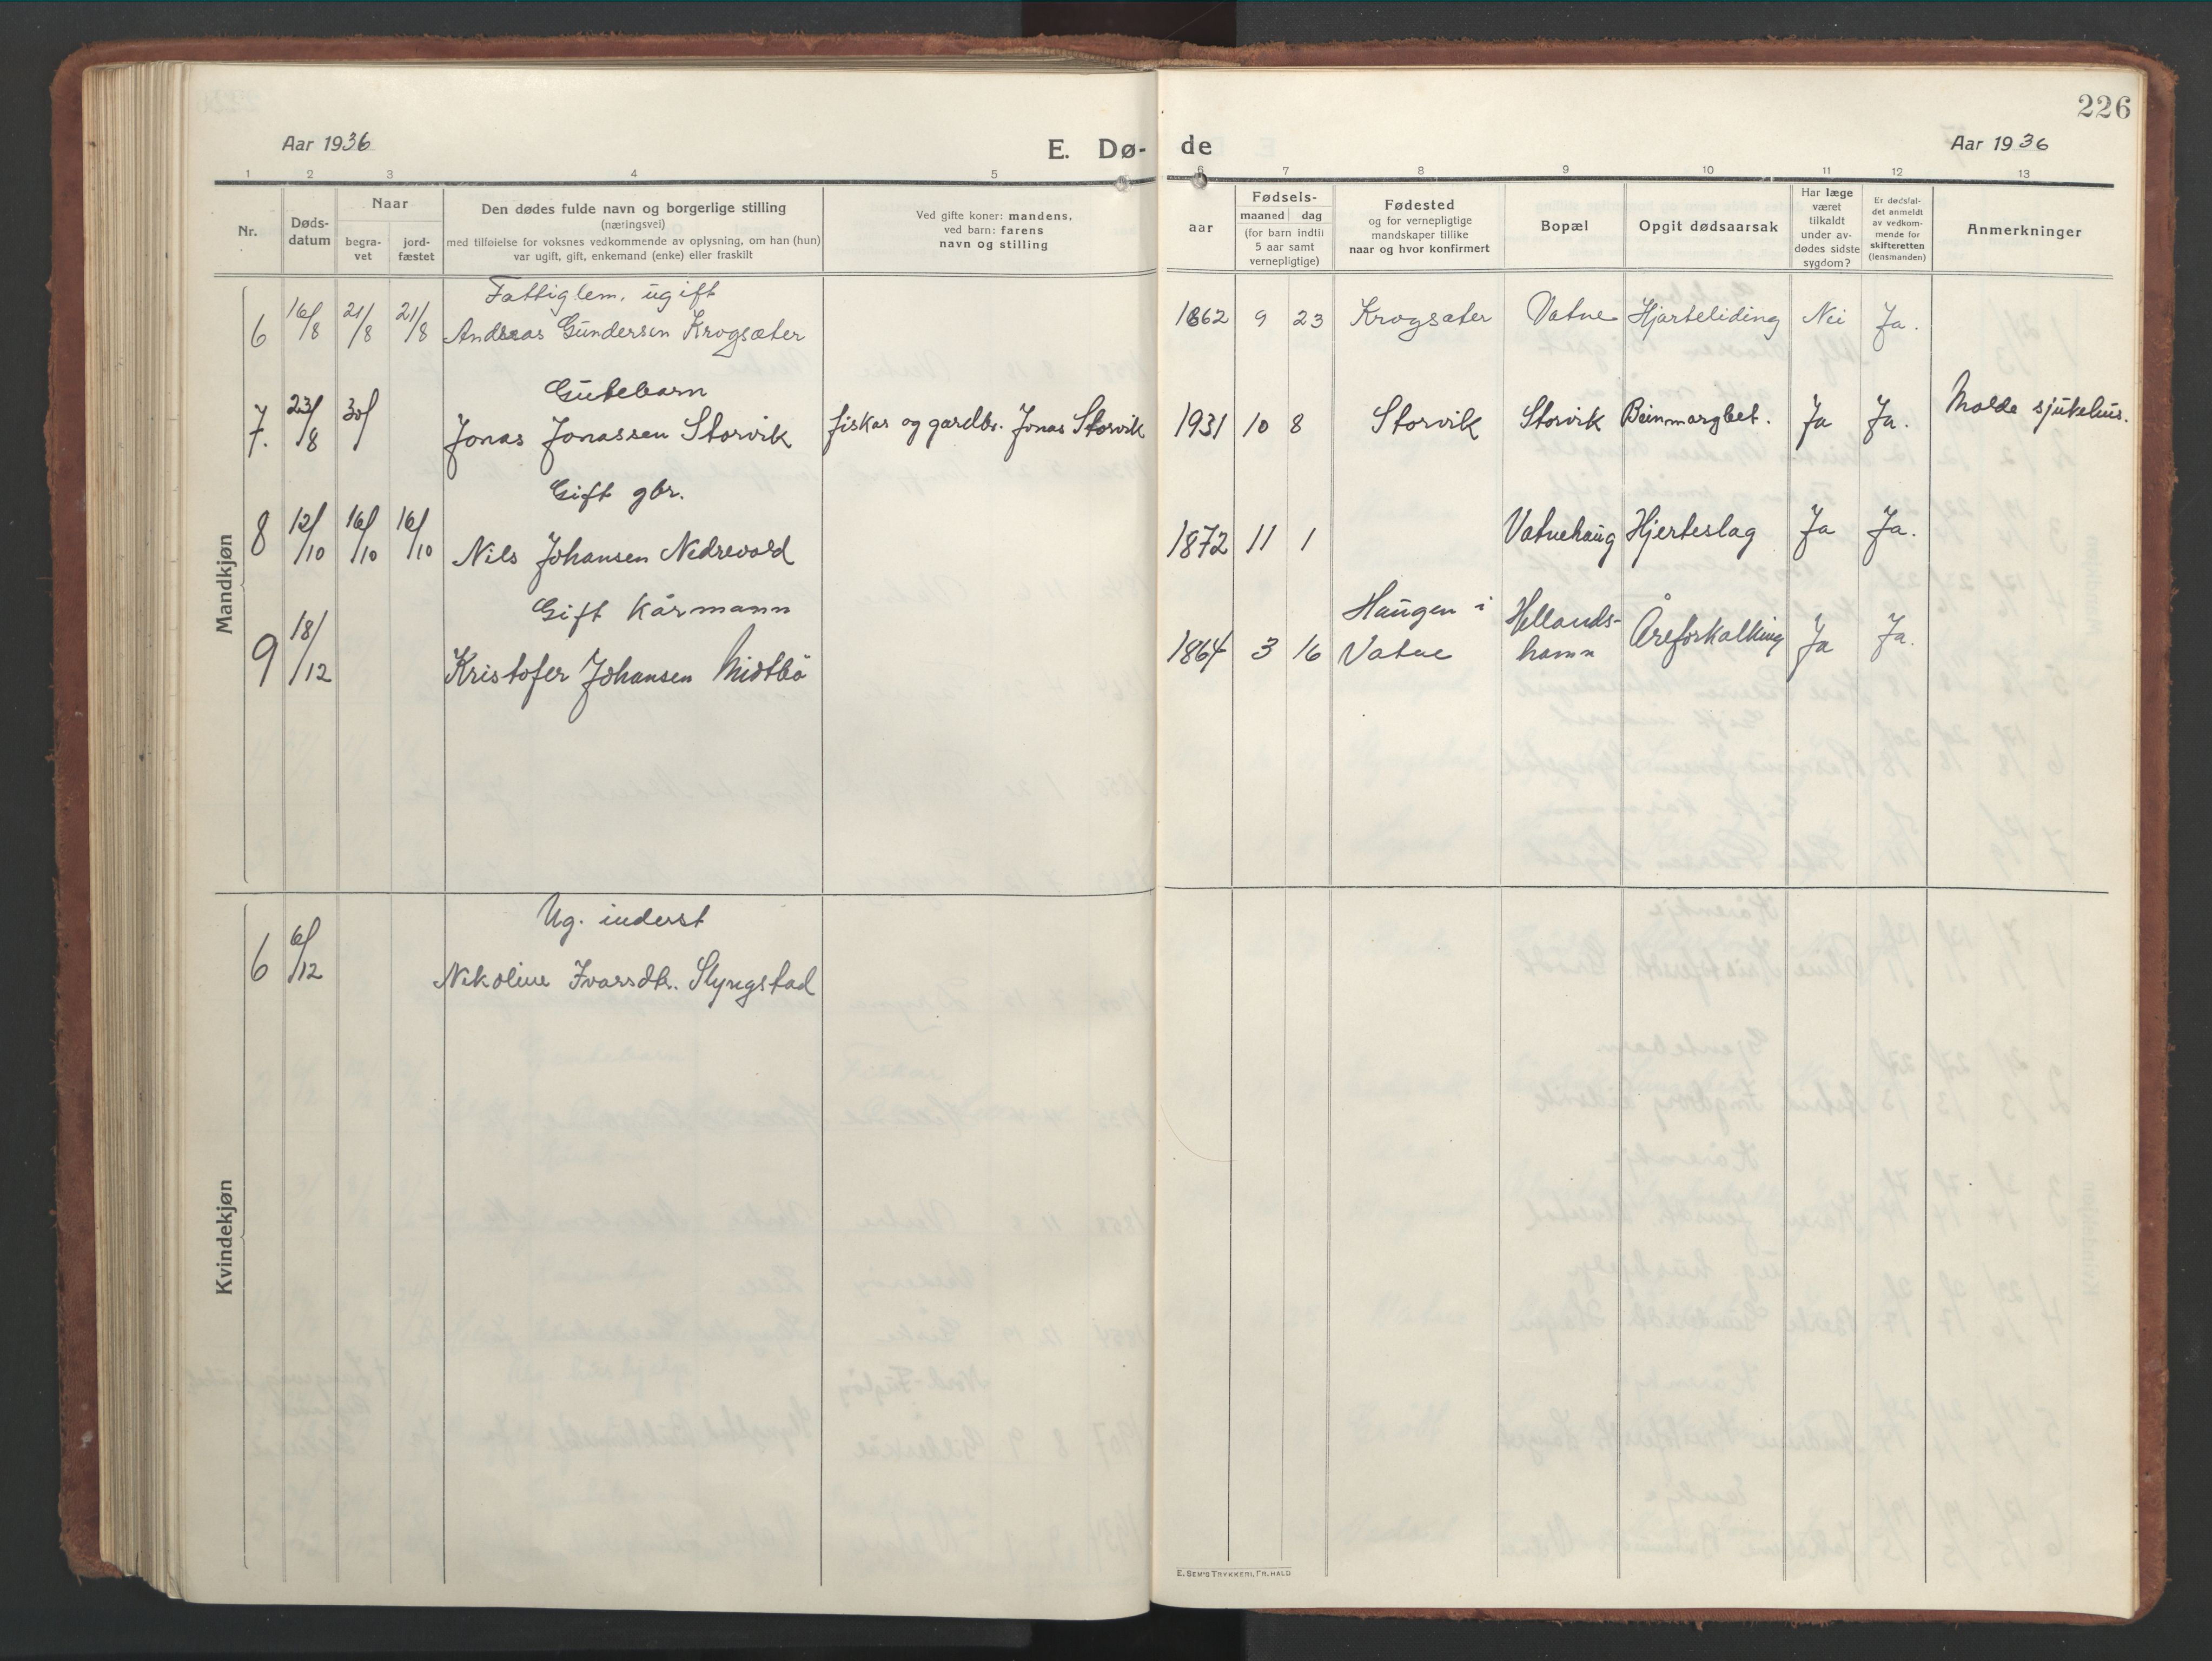 226
Aar 1936
E. Dø-
de
Aar 1936
1 2 3 4 5 6 7 8 9 10 11 12 13
Nr.
Døds-
datum
Naar
begra-
vet
jord-
fæstet
Den dødes fulde navn og borgerlige stilling
(næringsvei)
med tilføielse for voksnes vedkommende av oplysning, om han (hun)
var ugift, gift, enkemand (enke) eller fraskilt
Ved gifte koner: mandens,
ved barn: farens
navn og stilling
Fødsels-
aar
maaned dag
(for barn indtil
5 aar samt
vernepligtige)
Fødested
og for vernepligtige
mandskaper tillike
naar og hvor konfirmert
Bopæl
Opgit dødsaarsak
Har læge
været
tilkaldt
under av-
dødes sidste
sygdom?
Er dødsfal-
det anmeldt
av vedkom-
mende for
skifteretten
(lensmanden)
Anmerkninger
Mandkjøn
Fattiglem, ugift
6 16/8 21/8 21/8 Andreas Gundersen Krogsæter 1862 9 23 Krogsæter Vatne Hjarteliding Nei Ja.
Gutebarn
7. 23/8 30/ Jonas Jonassen Storvik fiskar og gardbr. Jonas Storvik 1931 10 8 Storvik Storvik Beinmargbet. Ja Ja. Molde sjukehus.
Gift gbr.
8 12/10 16/10 16/10 Nils Johansen Nedrevold 1872 11 1 Vatnehaug Hjerteslag Ja Ja.
Gift Kårmann
Haugen i
Hellands-
9 18/12 Kristofer Johansen Midtbö 1864 3 16 Vatne hamn Åreforkalking Ja Ja.
Kvindekjøn
Ug. inderst
6 6/12 Nikoline Ivarsdtr. Slyngstad
E. SEM'S TRYKKERI, FR. HALD